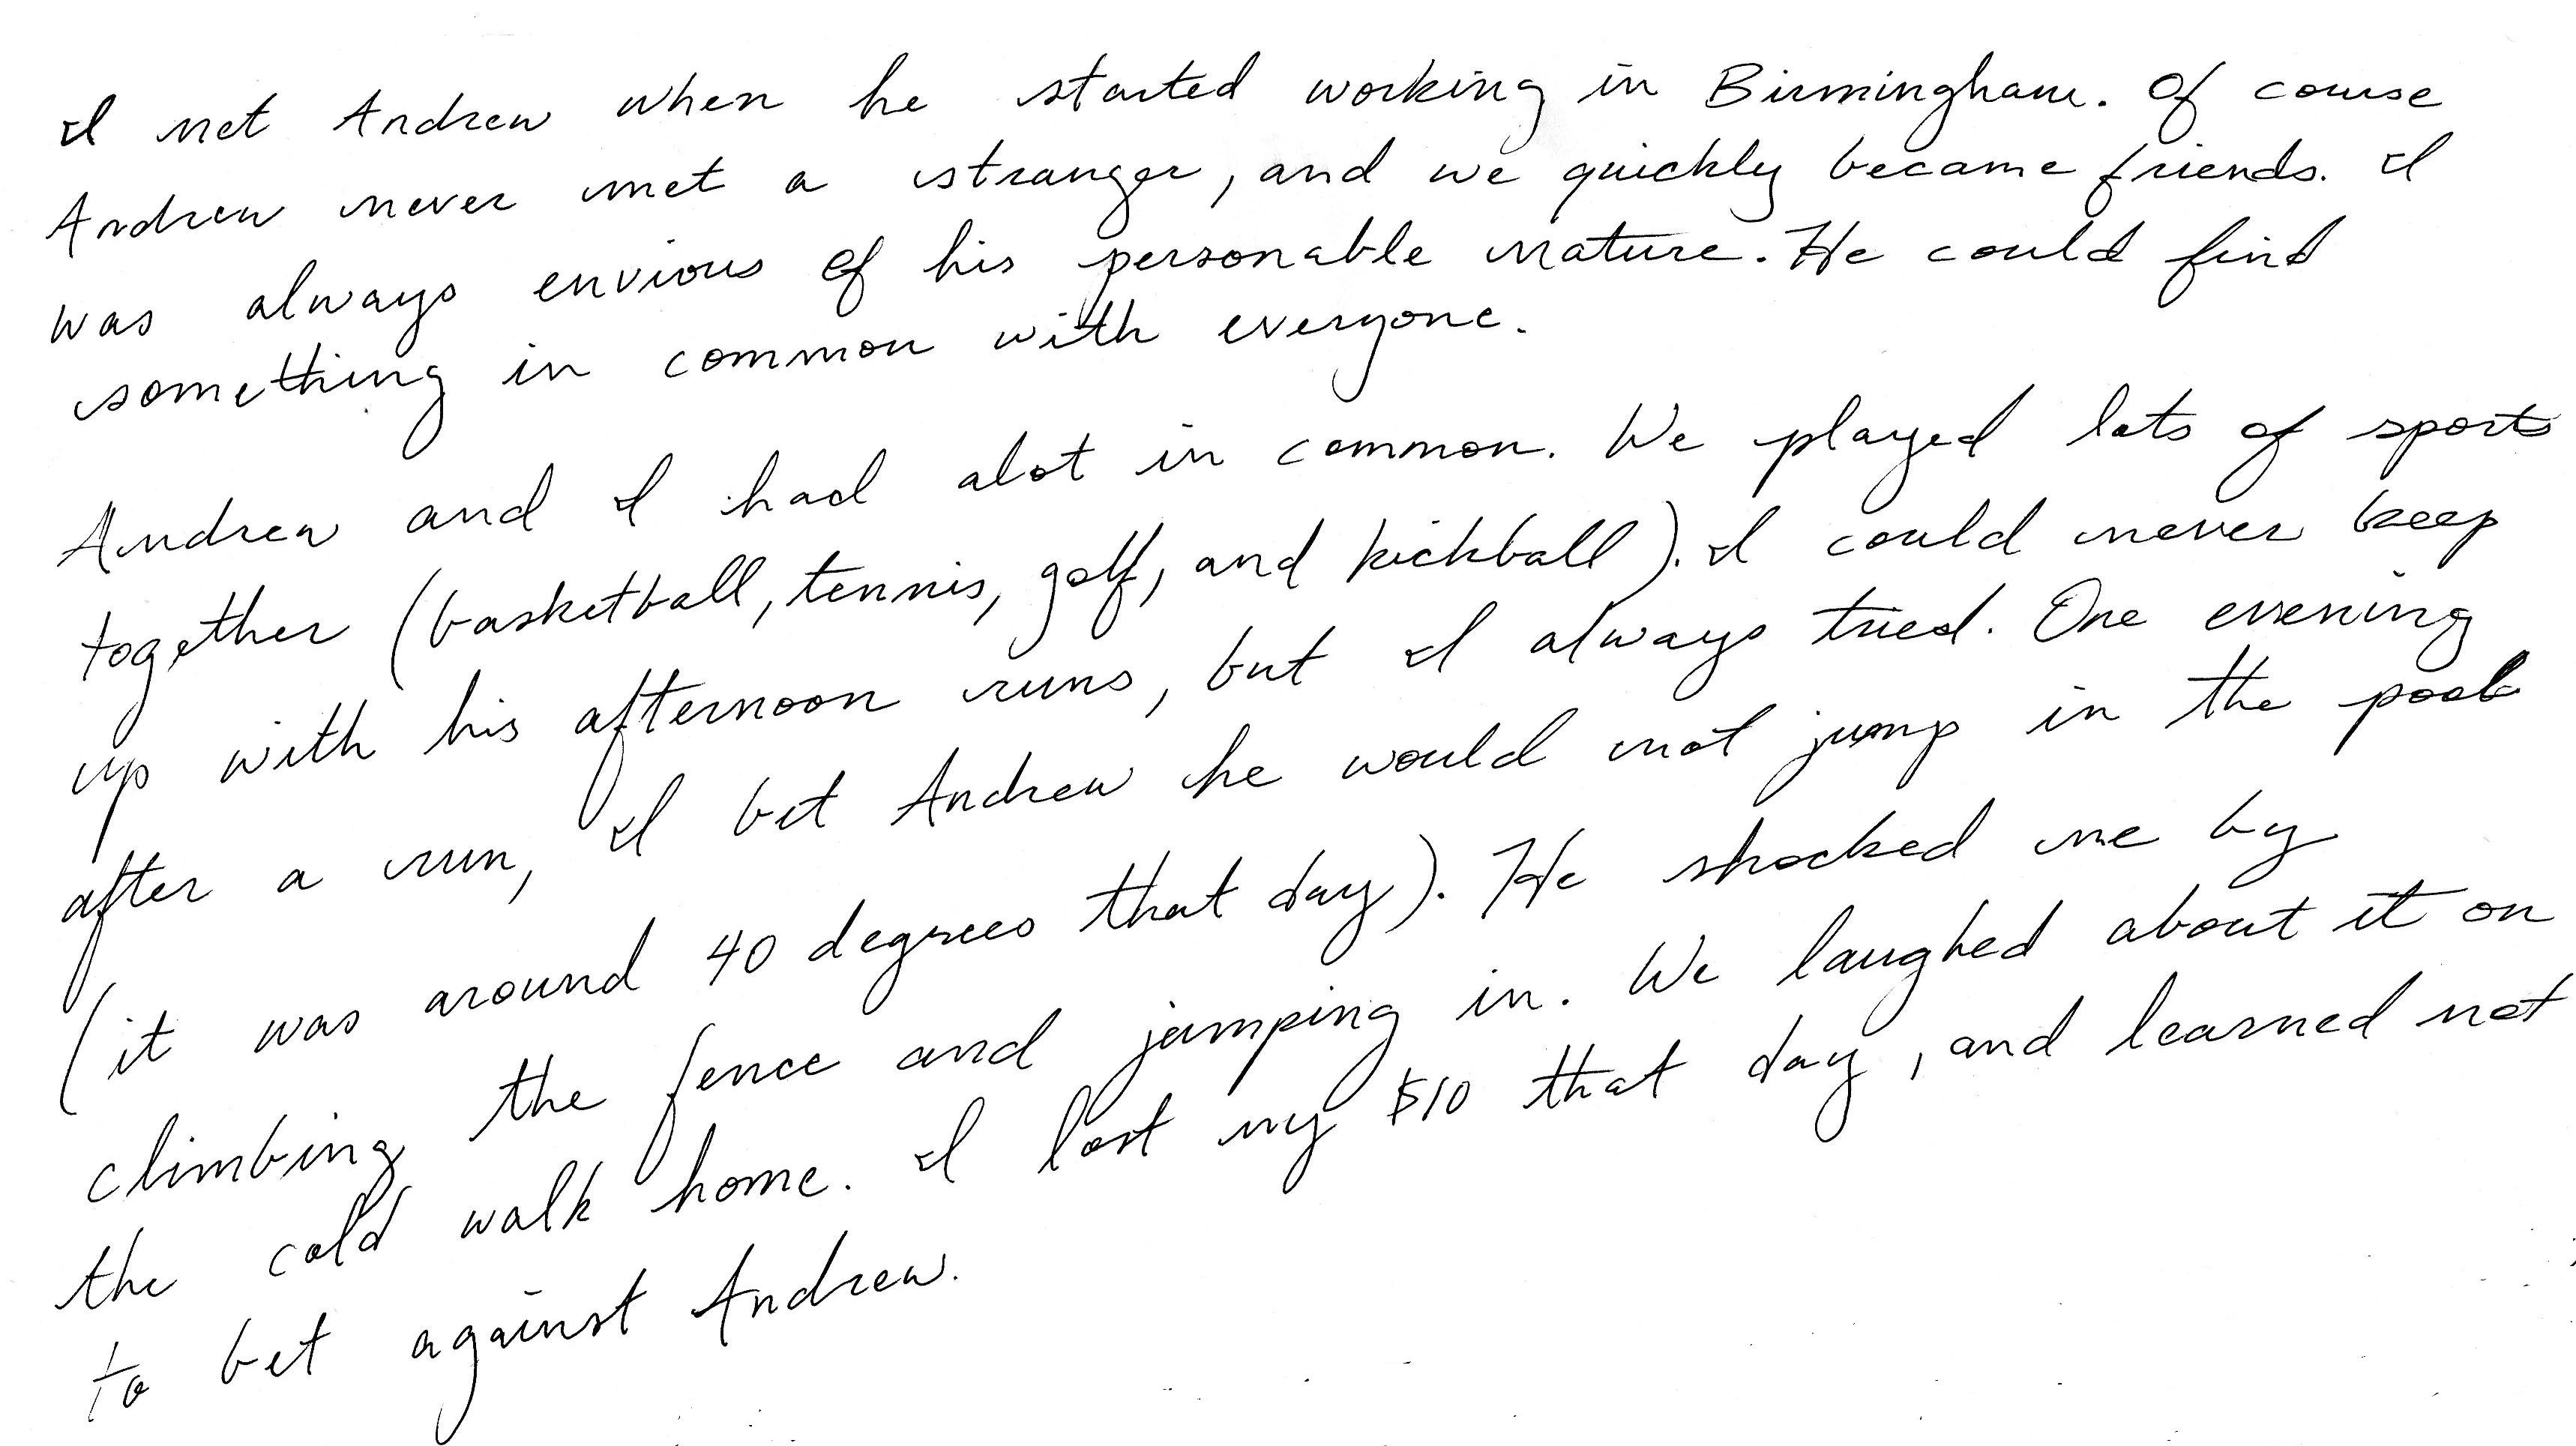 I met Andrew when he started working in Birmingham. Of course
Andrew never met a stranger, and we quickly became friends. I
was always envious of his personable nature. He could find
something in common with everyone.
Andrew and I had alot in common. We played lots of sports
together (basketball, tennis, golf, and kickball). I could never keep
up with his afternoon runs, but I always tried. One evening
after a run, I bet Andrew he would not jump in the pool
(it was around 40 degrees that day). He shocked me by
climbing the fence and jumping in. We laughed about it on
the cold walk home. I lost my $10 that day, and learned not
to bet against Andrew.